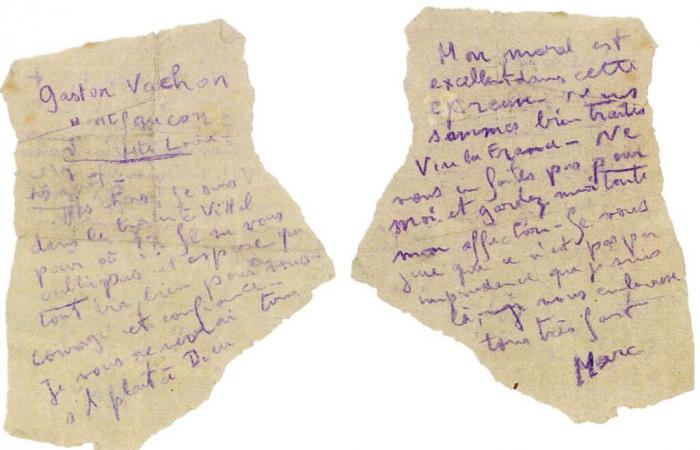 Gaston Vachon
Montfaucon
Hte Loire
Mes chers je suis
dans le train à Vittel
pour où ?? Je ne vous
oublie pas et espère que
tout ira bien pour vous
courage et confiance
Je vous reverrai tous
s'il plait à Dieu
Mon moral est
excellent dans cette
épreuve. Nous
sommes bien traités
Vive la France. Ne
vous en faites pas pour
moi et gardez moi toute
mon affection. Je vous
jure que ce n'est pas par
imprudence que je suis
là, je vous embrasse
tous très fort
Marc